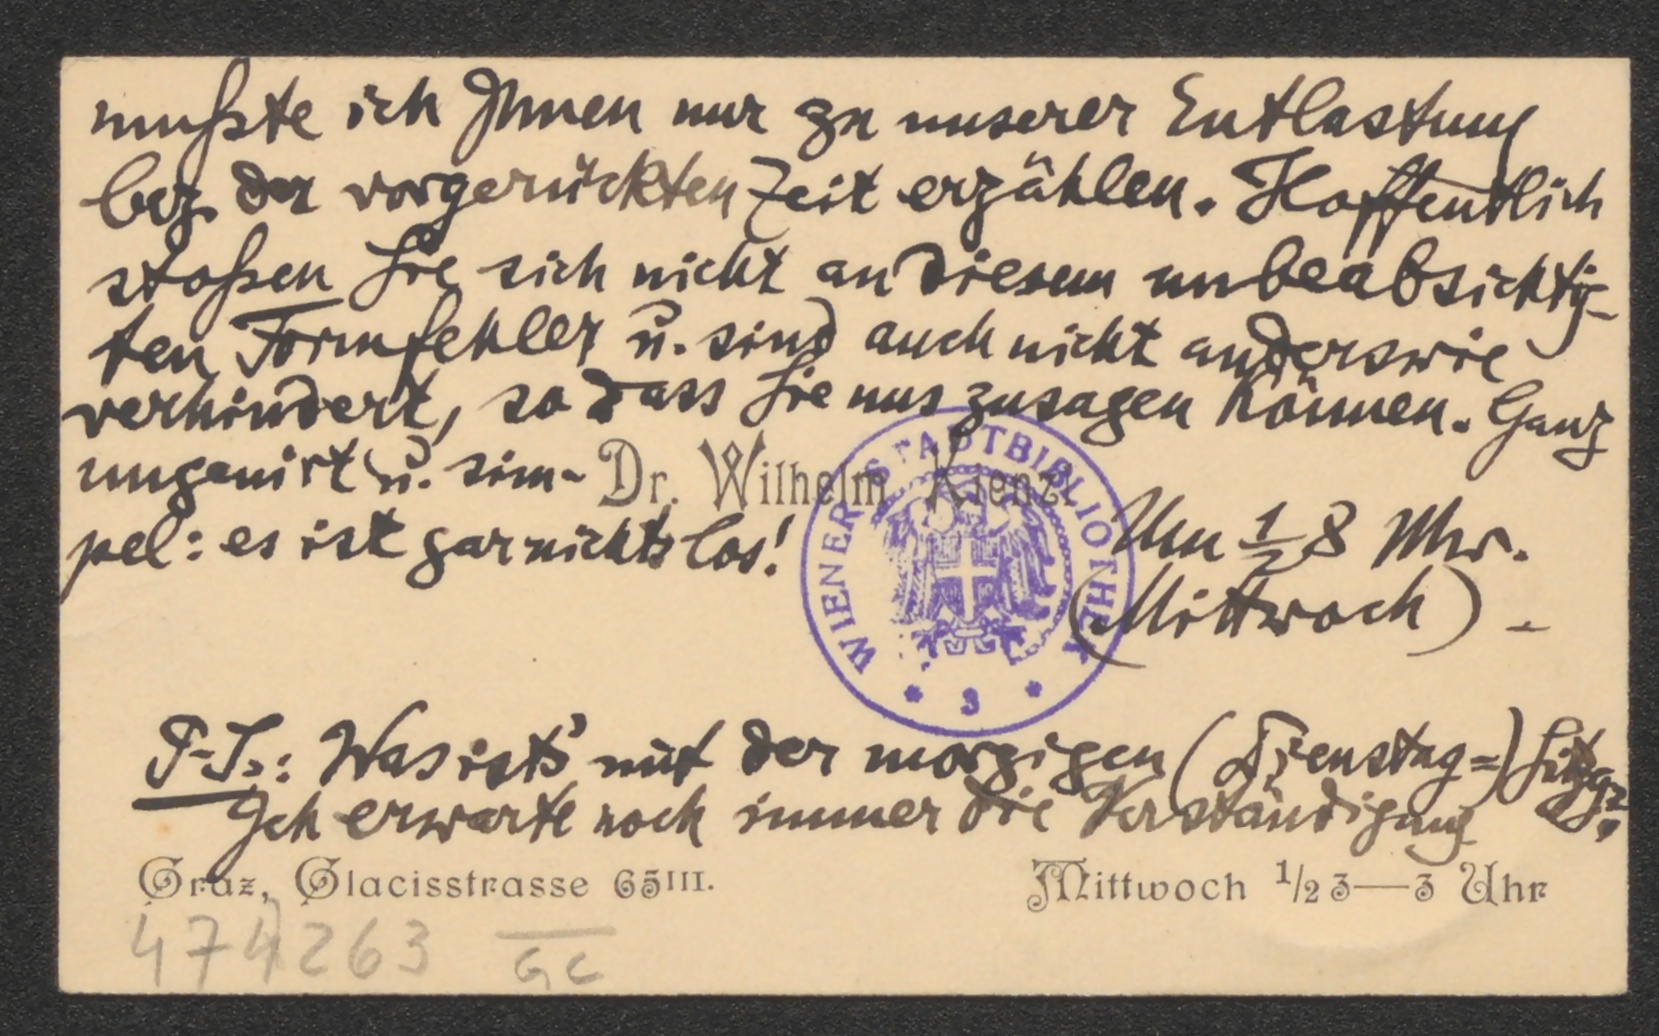 mußte ich Ihnen nur zu unserer Entlastung
bez. der vorgerückten Zeit erzählen. Hoffentlich
stoßen Sie sich nicht an diesem unbeabsichtig-
ten Formfehler u. sind auch nicht anderswie
verhindert, so dass Sie uns zusagen können. Ganz
ungenirt u. sim-
Dr. Wilhelm Kienzl
pel: es ist gar nichts los!
Um ½ 8 Uhr.
(Mittwoch) -
WIENER STADTBIBLIOTHEK
* 3 *
P.S.: Was ist's mit der morgigen (Dienstag=) Sitzg.?
Ich erwarte noch immer die Verständigung
Graz, Glacisstrasse 65III.
Mittwoch 1/2 3—3 Uhr
474263
GC